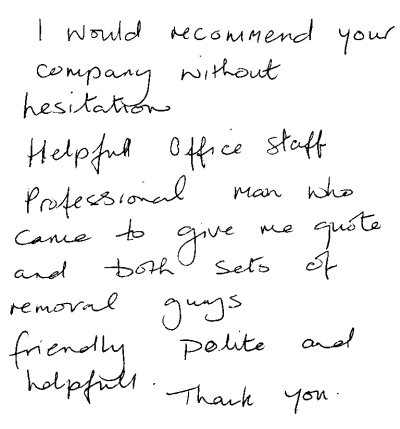 I would recommend your
company without
hesitation
Helpfull Office staff
Professional man who
came to give me quote
and both sets of
removal guys
friendly polite and
helpfull.
Thank you.